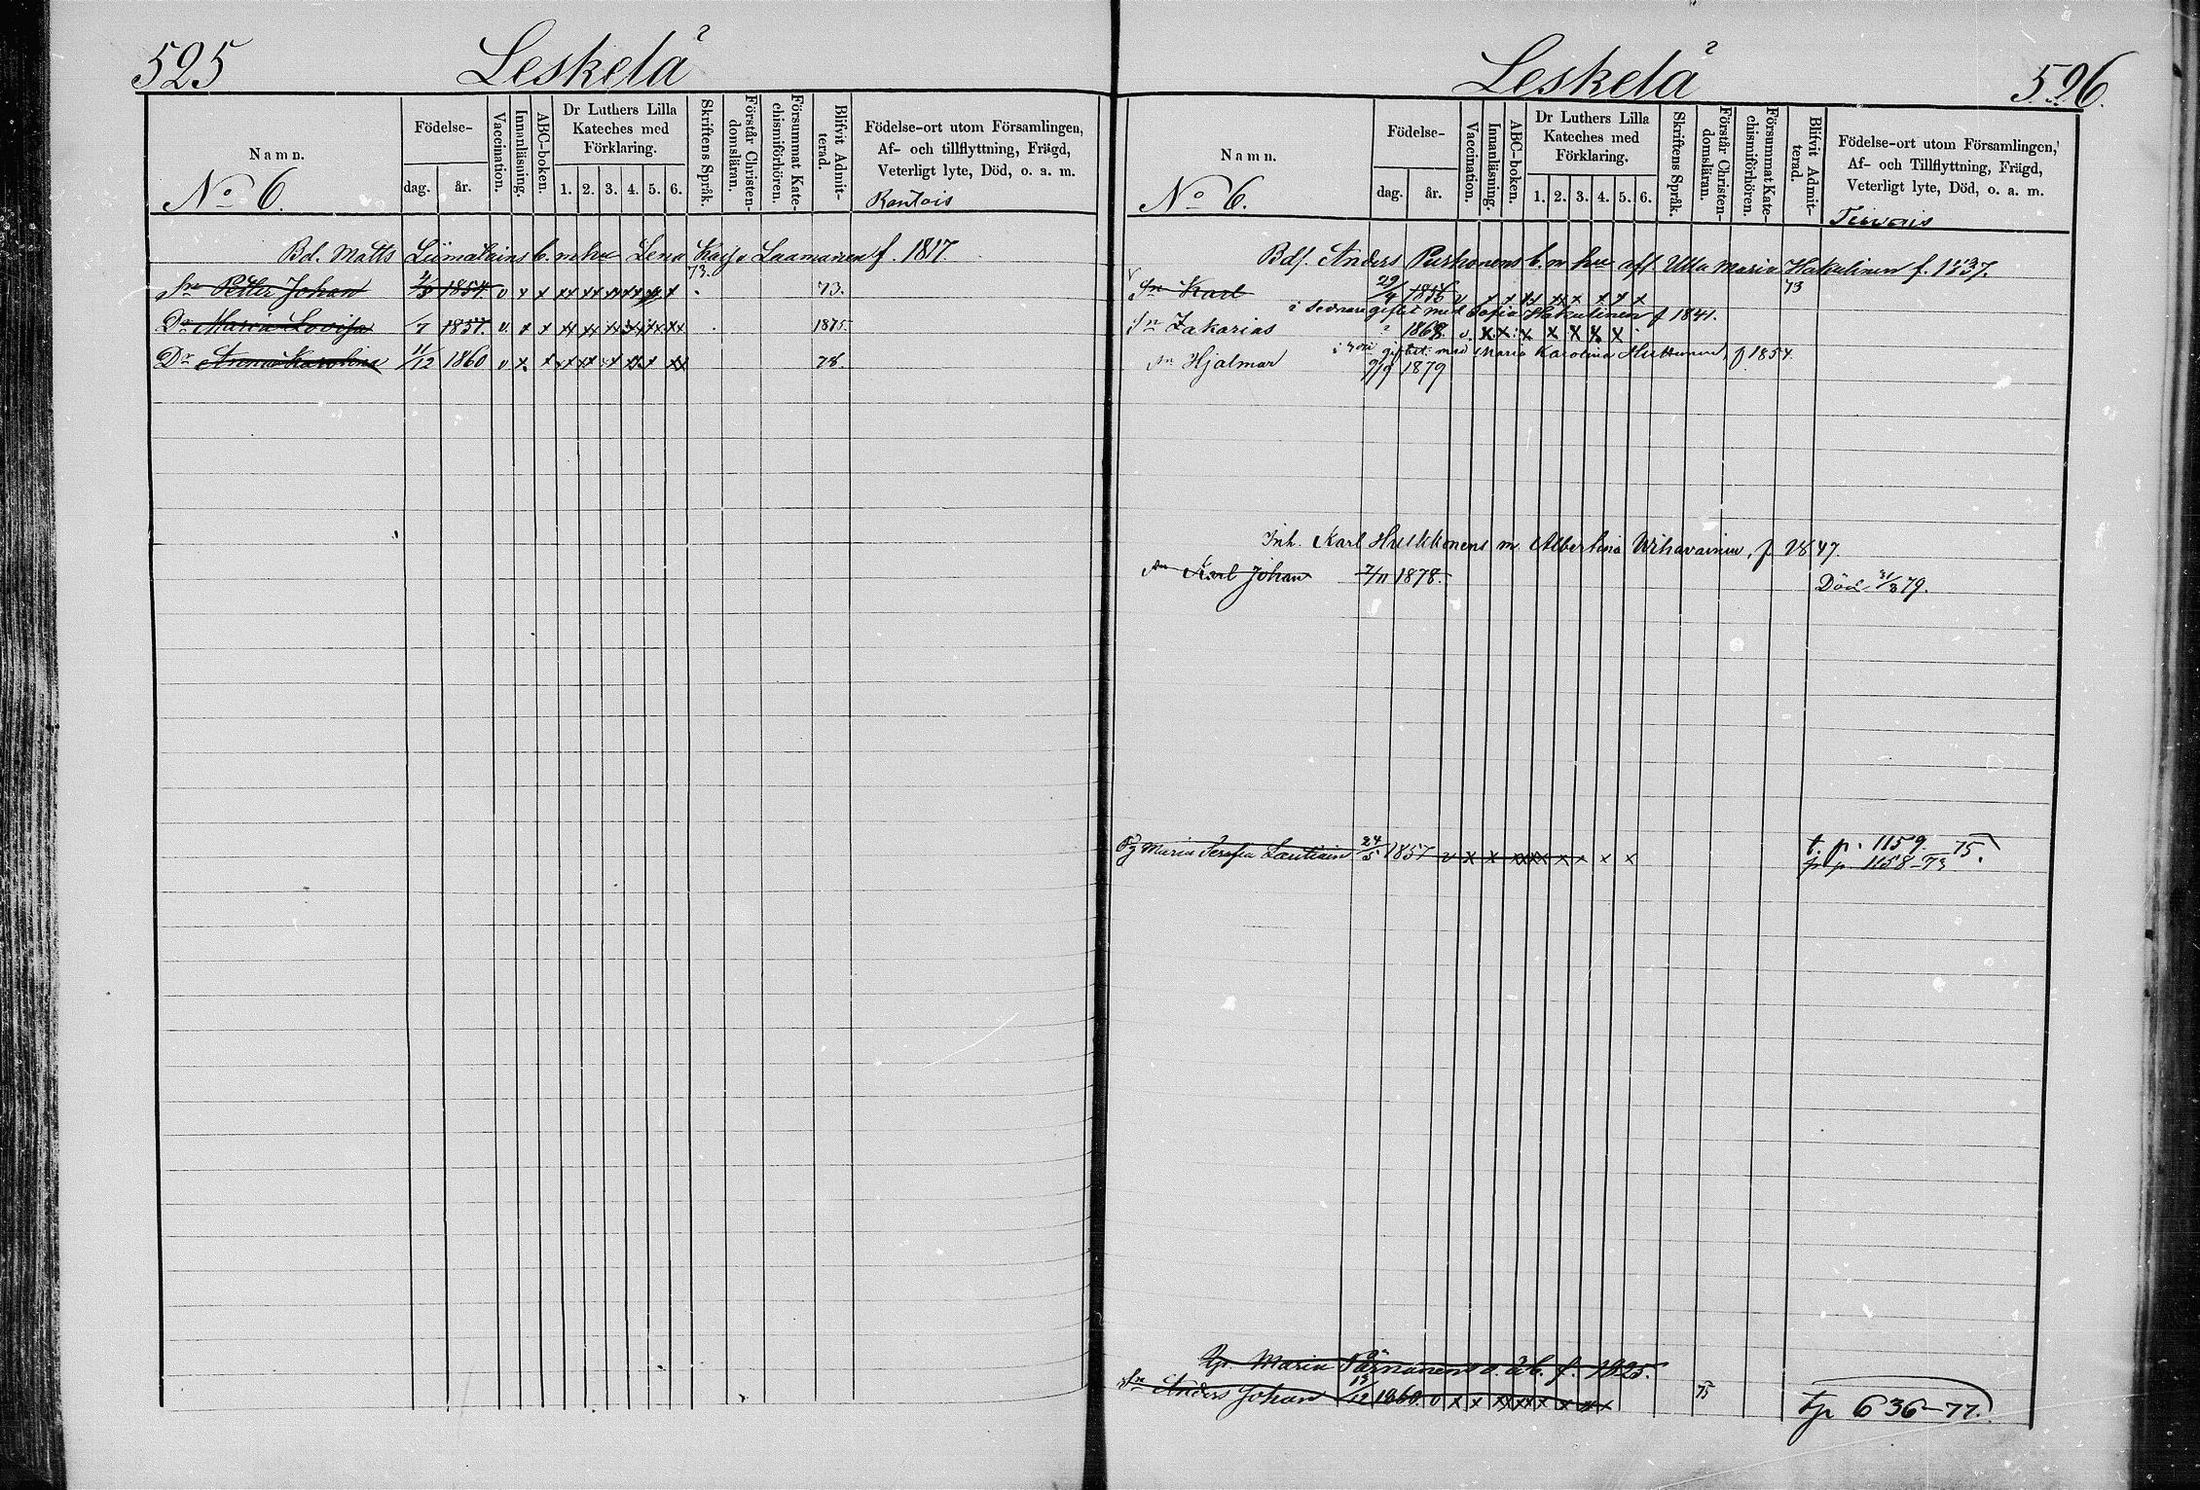 525
Leskelä
Namn.
Födelse-
dag. år.
Vaccination.
Innanläsning.
ABC-boken.
Dr Luthers Lilla
Kateches med
Förklaring.
1. 2. 3. 4. 5. 6.
Skriftens Språk.
Förstår Christen-
domsläran.
Försummat Kate-
chismiförhören.
Blifvit Admit-
terad.
Födelse-ort utom Församlingen,
Af- och tillflyttning, Frägd,
Veterligt lyte, Död, o. a. m.
No 6.
Rantois
Bd. Matts Liimatains b. m hu Lena Kaisa Laamanen f. 1817.
Sn Petter Johan 1854. v x x xx xx xx xx x 73. 73.
Dr Maria Lovisa 1857. v. x x xx xx xx xx xx xx 1875.
Dr Anna Karolina 11/12 1860 v x x xx xx x xx x xx 78.
Leskelä
526.
Namn.
Födelse-
dag. år.
Vaccination.
Innanläsning.
ABC-boken.
Dr Luthers Lilla
Kateches med
Förklaring.
1. 2. 3. 4. 5. 6.
Skriftens Språk.
Förstår Christen-
domsläran.
Försummat Kate-
chismiförhören.
Blifvit Admit-
terad.
Födelse-ort utom Församlingen,
Af- och Tillflyttning, Frägd,
Veterligt lyte, Död, o. a. m.
No 6.
Tervois
Bdf. Anders Purhonens b. m hu afl Ulla Maria Hakulinen f. 1837.
Sn Karl 29/4 v x x xx xx x x x x 73
i sednare giftet med Sofia Hakulinen f 1841.
Sn Zakarias 1868. v. x x x x x x x
giftet med Maria Karolina f 1854.
Sn Hjalmar 9/9 1879
Inh. Karl Hulkkonens m Albertina Wihavainen, f 1847.
Sn Karl Johan 7/11 1878. Död 31/3 79.
Pg Maria Serafia Lautiain 24/5 1857 v x x xx xx x x x x
t. p. 1159–75.
p. 1158–73
Maria f. 1825.
Sn Anders Johan 1860. v x x xx xx x x xx 75
tp 636–77.